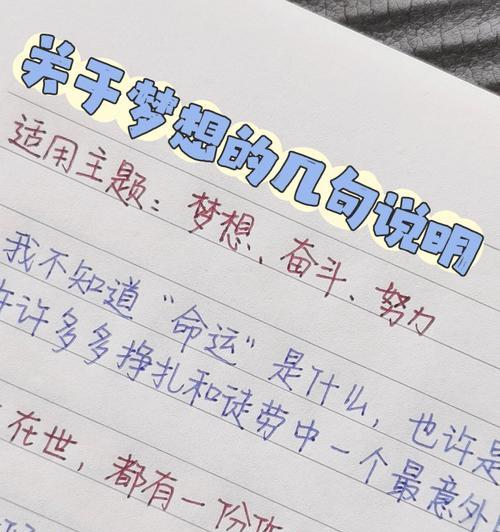 关于梦想的几句说明
适用主题：梦想、奋斗、努力
我不知道“命运”是什么，也许是
许许多多挣扎和徒劳中一个最意外
在世，都有一份